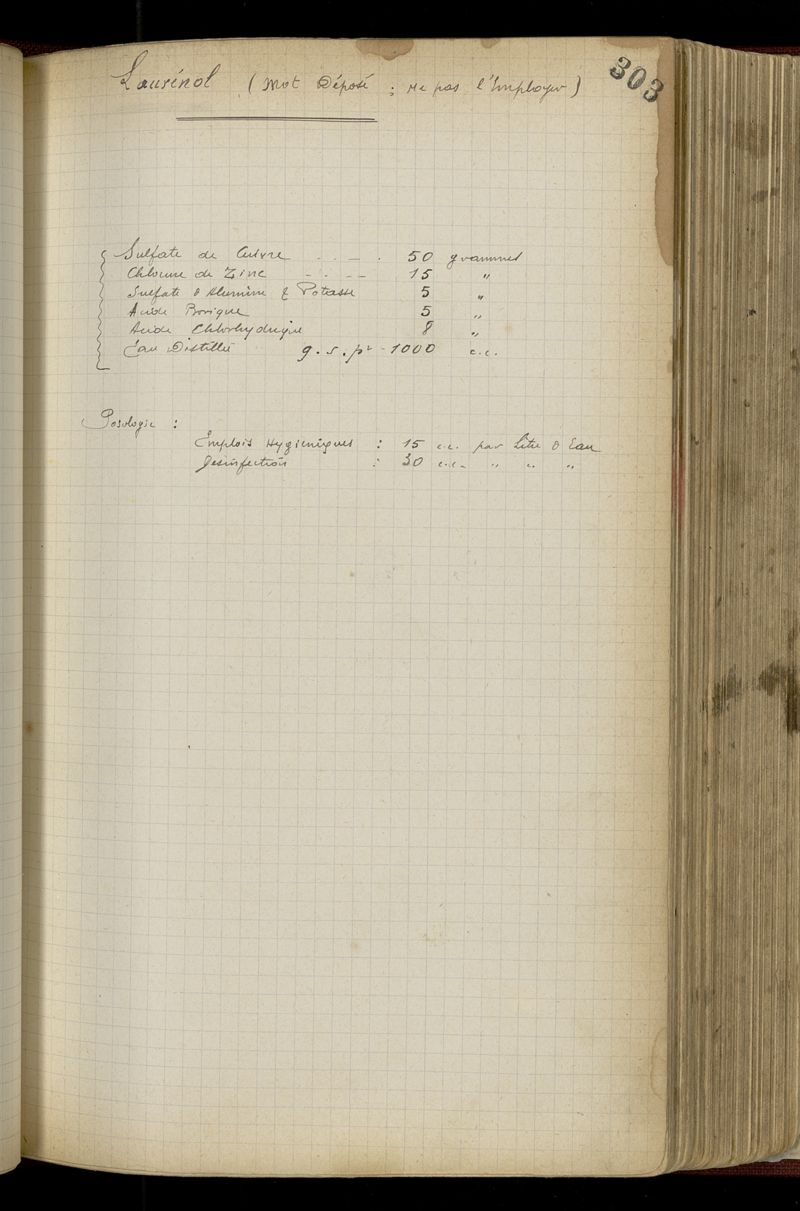 303
Laurénol (Mot Déposé ; Ne pas l'Employer)
Sulfate de Cuivre - - - . 50 grammes
Chlorure de Zinc - . - - 15 "
Sulfate d'Alumine & Potasse 5 "
Acide Borique 5 "
Acide Chlorhydrique 8 "
Eau Distillée q.s.pr - 1000 c.c.
Posologie :
Emplois Hygieniques : 15 c.c. par Litre d'Eau
Desinfection : 30 c.c. " " "